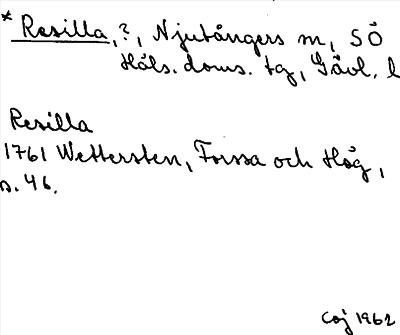 * Resilla, ?, Njutångers sn, SÖ
Häls. doms. tg, Gävl. l
Resilla
1761 Wettersten, Forssa och Hög,
s. 46.
Coj 1962